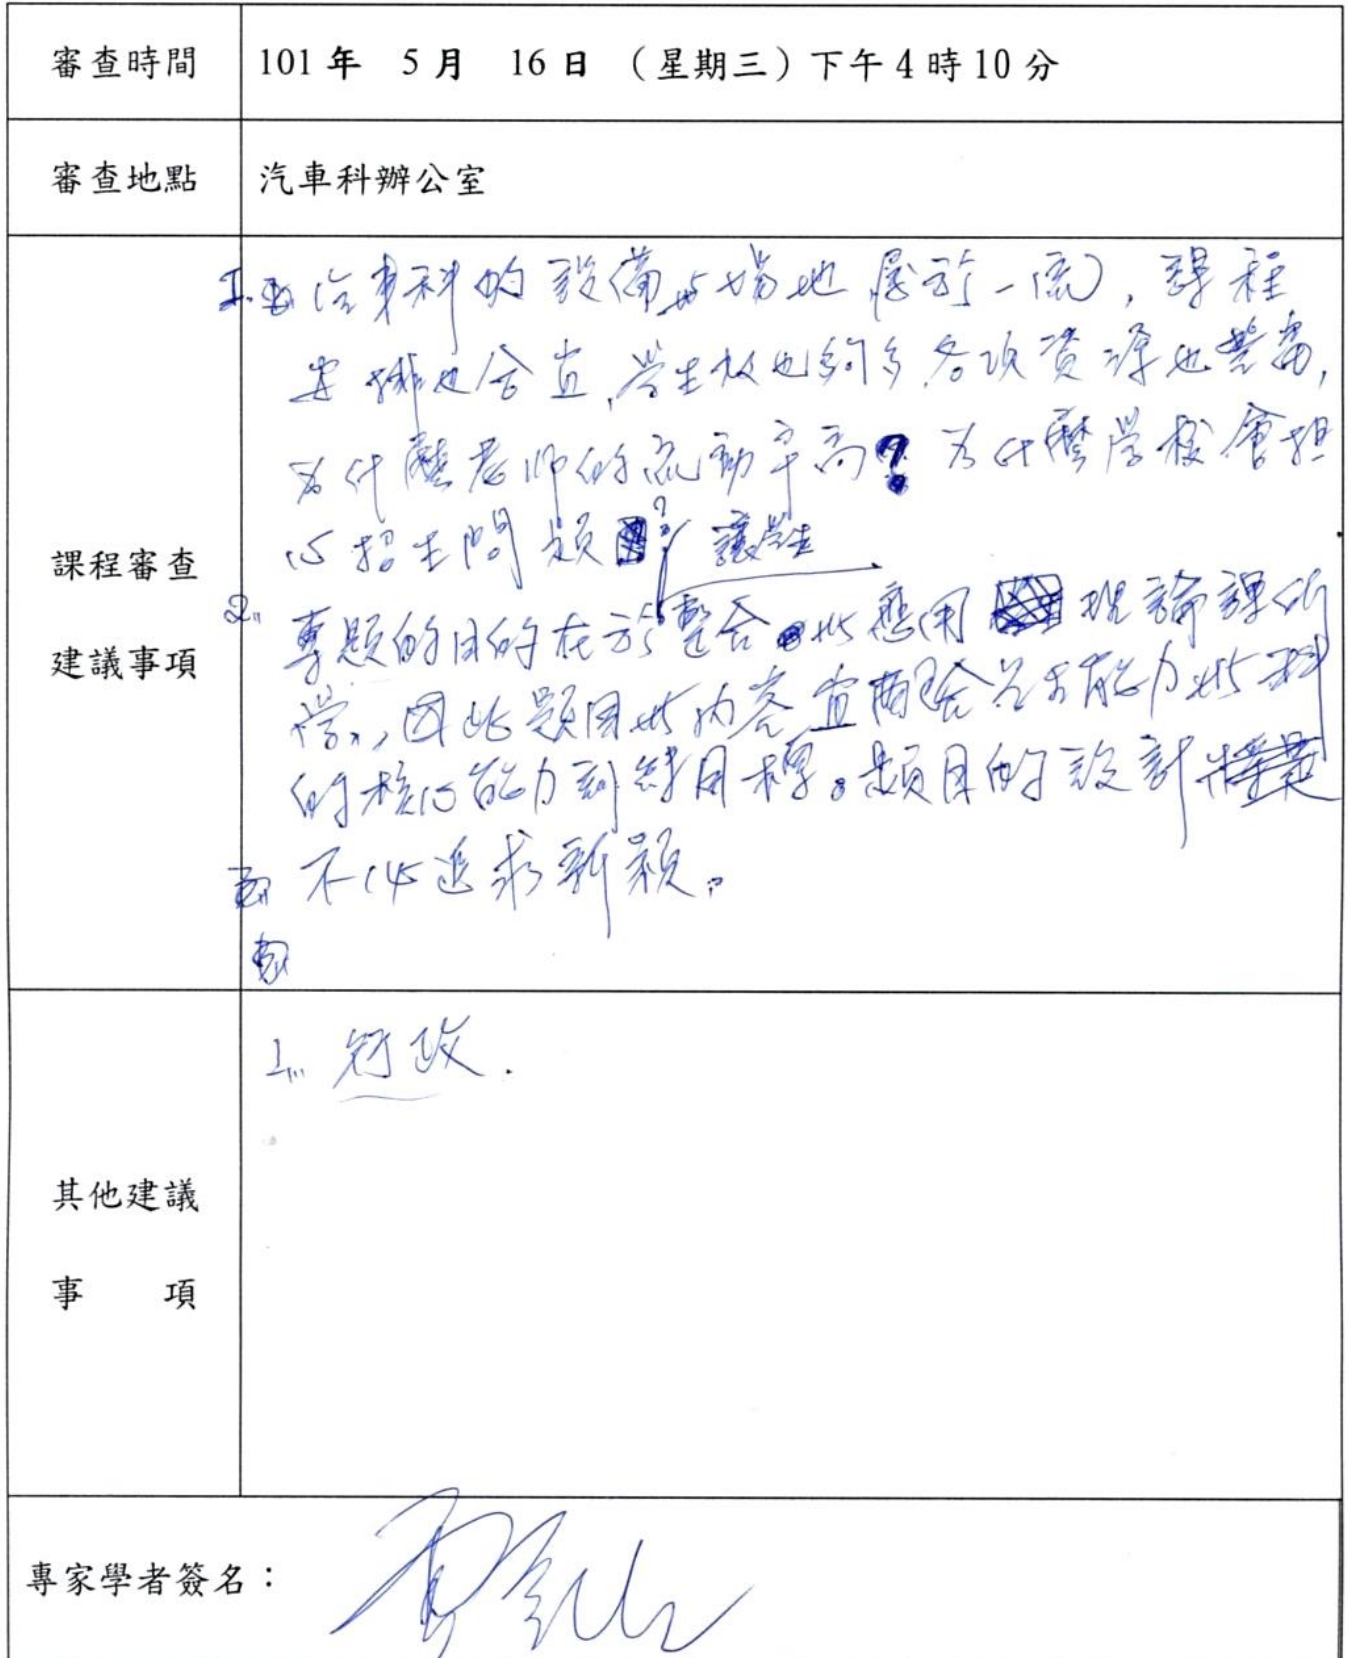 審查時間
101年 5月 16日 （星期三）下午4時10分
審查地點
汽車科辦公室
課程審查
建議事項
1. 汽車科的設備與場地屬於一流，課程
安排也合宜，學生數也夠多，各項資源也豐富，
為什麼老師的流動率高？為什麼學校會担
心招生問題？
讓學生
2. 專題的目的在於整合與應用理論課所
學，因此題目與內容宜配合學生能力與科
的核心能力訓練目標。題目的設計
不必追求新穎。
其他建議
事 項
1. 行政.
專家學者簽名：